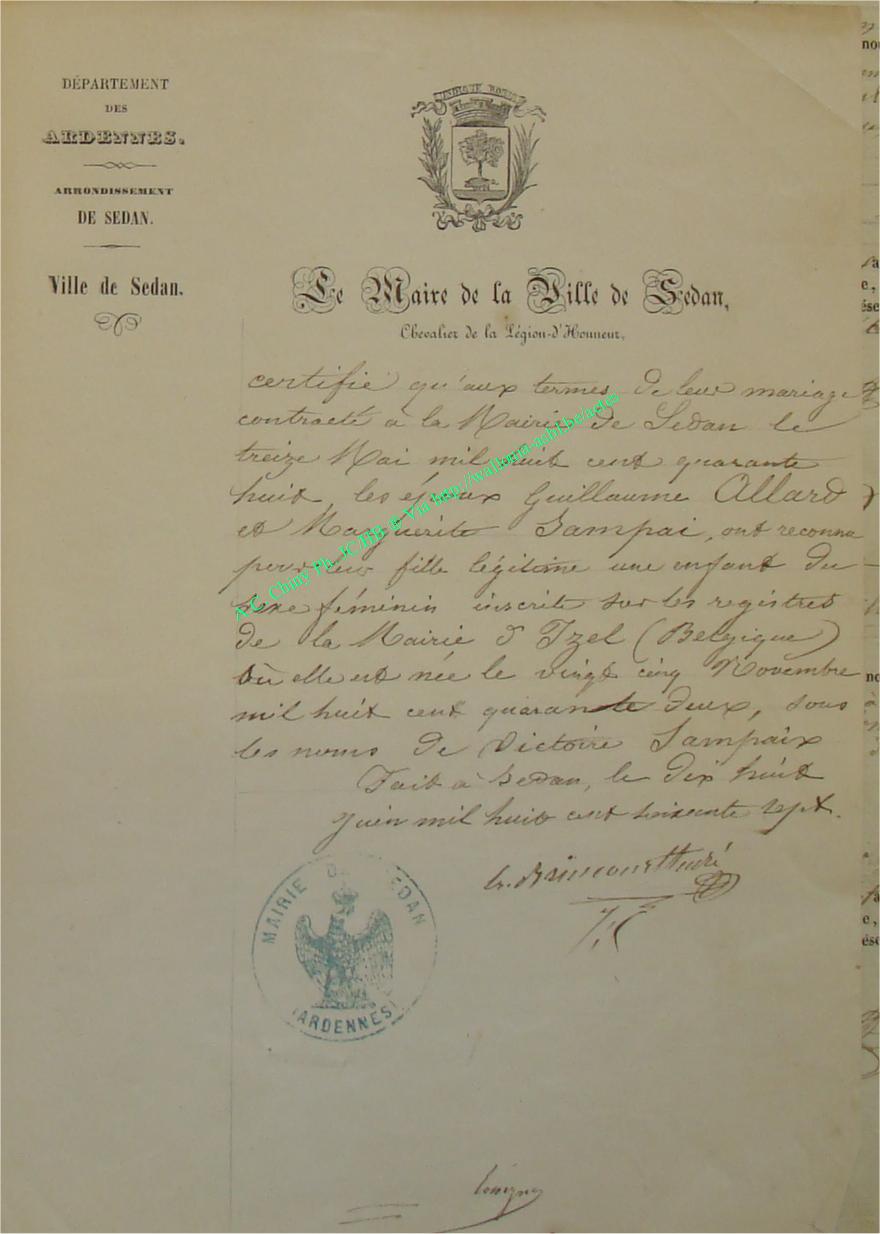 DÉPARTEMENT
DES
ARDENNES.
ARRONDISSEMENT
DE SEDAN.
Ville de Sedan.
Le Maire de la Ville de Sedan,
Chevalier de la Légion-d'Honneur,
certifie qu'aux termes de leur mariage
contracté à la Mairie de Sedan le
treize Mai mil huit cent quarante
huit, les époux Guillaume Allard
et Marguerite Sampai, ont reconnu
pour leur fille légitime une enfant du
sexe féminin inscrite sur les registres
de la Mairie d'Izel (Belgique)
où elle est née le vingt cinq Novembre
mil huit cent quarante deux, sous
les noms de Victoire Sampaix
Fait à Sedan, le dix huit
juin mil huit cent soixante sept.
MAIRIE DE SEDAN
(ARDENNES)
A.C. Chiny Ph. JC.HB @ Via http://wallonia-achf.be/actes